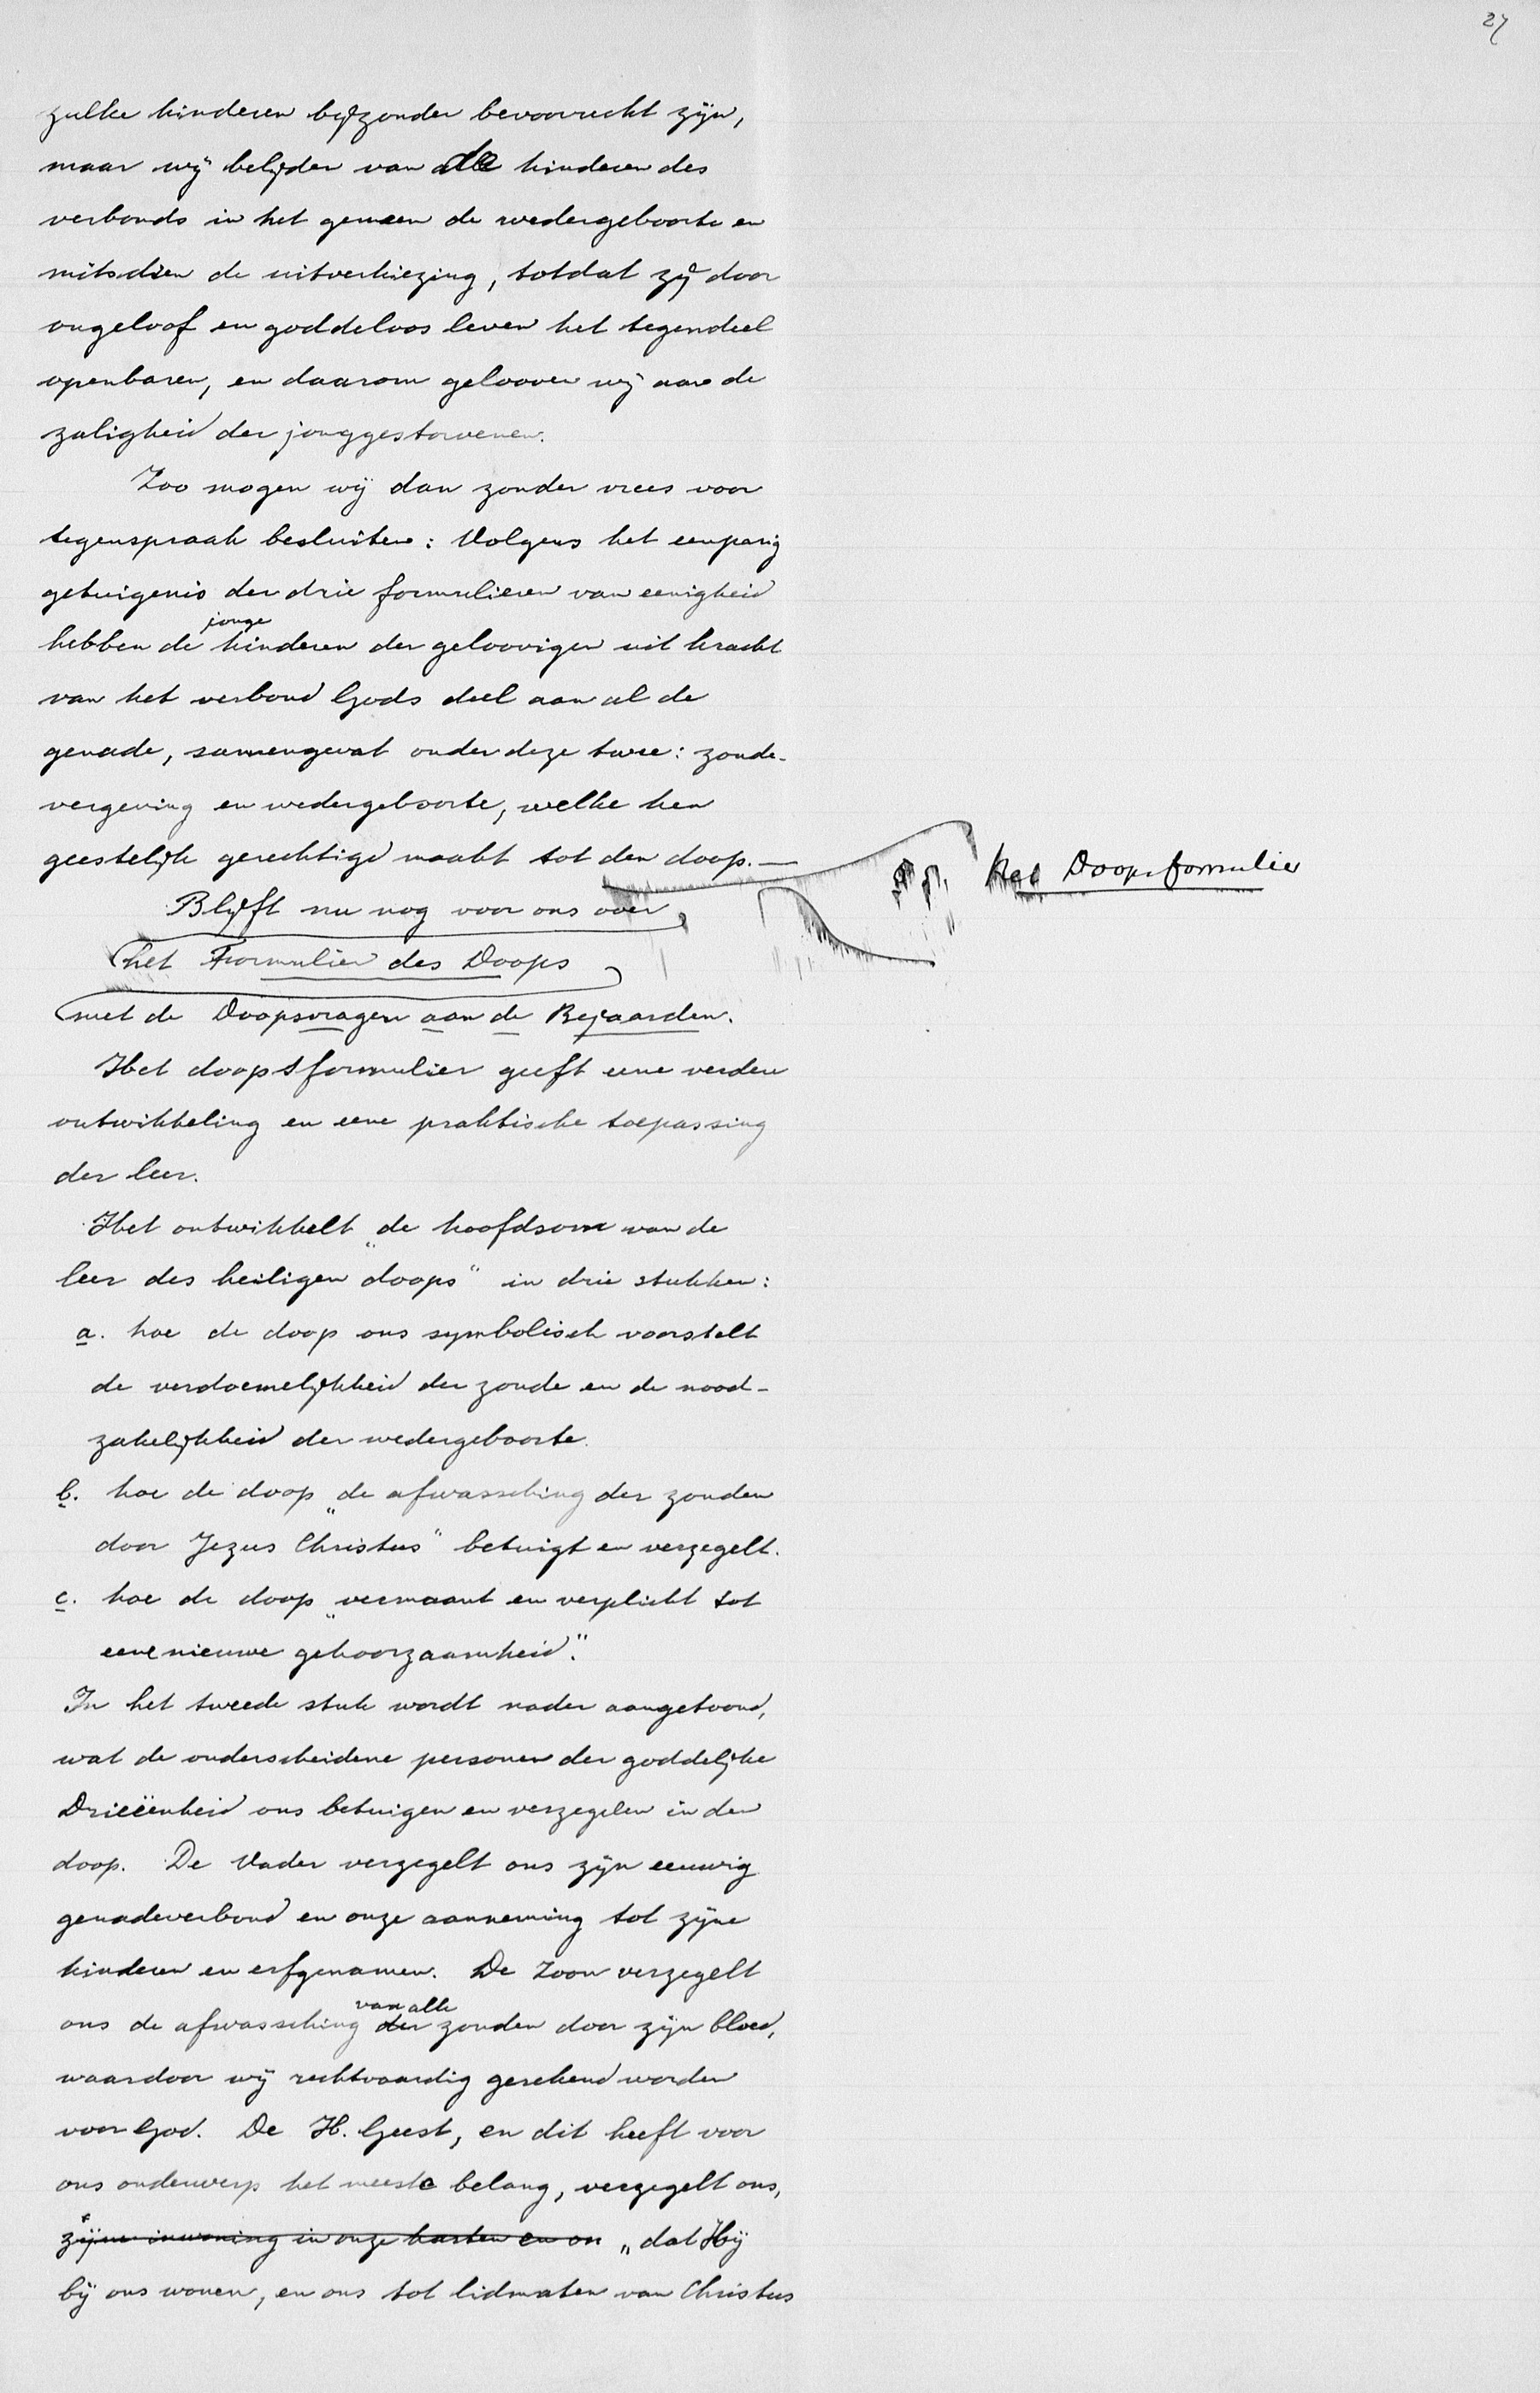 27
zulke kinderen bijzonder bevoorrecht zijn,
maar wij belijden van alle kinderen des
verbonds in het gemeen de wedergeboorte en
mitsdien de uitverkiezing, totdat zij door
ongeloof en goddeloos leven het tegendeel
openbaren, en daarom gelooven wij aan de
zaligheid der jonggestorvenen.
Zoo mogen wij dan zonder vrees voor
tegenspraak besluiten: Volgens het eenparig
getuigenis der drie formulieren van eenigheid
jonge
hebben de kinderen der geloovigen uit kracht
van het verbond Gods deel aan al de
genade, samengevat onder deze twee: zonde-
vergeving en wedergeboorte, welke hen
geestelijk gerechtigd maakt tot den doop.—
Het Doopsformulier
Blijft nu nog voor ons over
het Formulier des Doops
met de Doopsvragen aan de Bejaarden.
Het doopsformulier geeft eene verdere
ontwikkeling en eene praktische toepassing
der leer.
Het ontwikkelt „de hoofdsom van de
leer des heiligen doops" in drie stukken:
a. hoe de doop ons symbolisch voorstelt
de verdoemelijkheid der zonde en de nood-
zakelijkheid der wedergeboorte.
b. hoe de doop „de afwassching der zonden
door Jezus Christus" betuigt en verzegelt.
c. hoe de doop „vermaant en verplicht tot
eene nieuwe gehoorzaamheid."
In het tweede stuk wordt nader aangetoond,
wat de onderscheidene personen der goddelijke
Drieëenheid ons betuigen en verzegelen in den
doop. De Vader verzegelt ons zijn eeuwig
genadeverbond en onze aanneming tot zijne
kinderen en erfgenamen. De Zoon verzegelt
van alle
ons de afwassching der zonden door zijn bloed,
waardoor wij rechtvaardig gerekend worden
voor God. De H. Geest, en dit heeft voor
ons onderwerp het meeste belang, verzegelt ons,
zijne inwoning in onze harten en on „dat Hij
bij ons wonen, en ons tot lidmaten van Christus